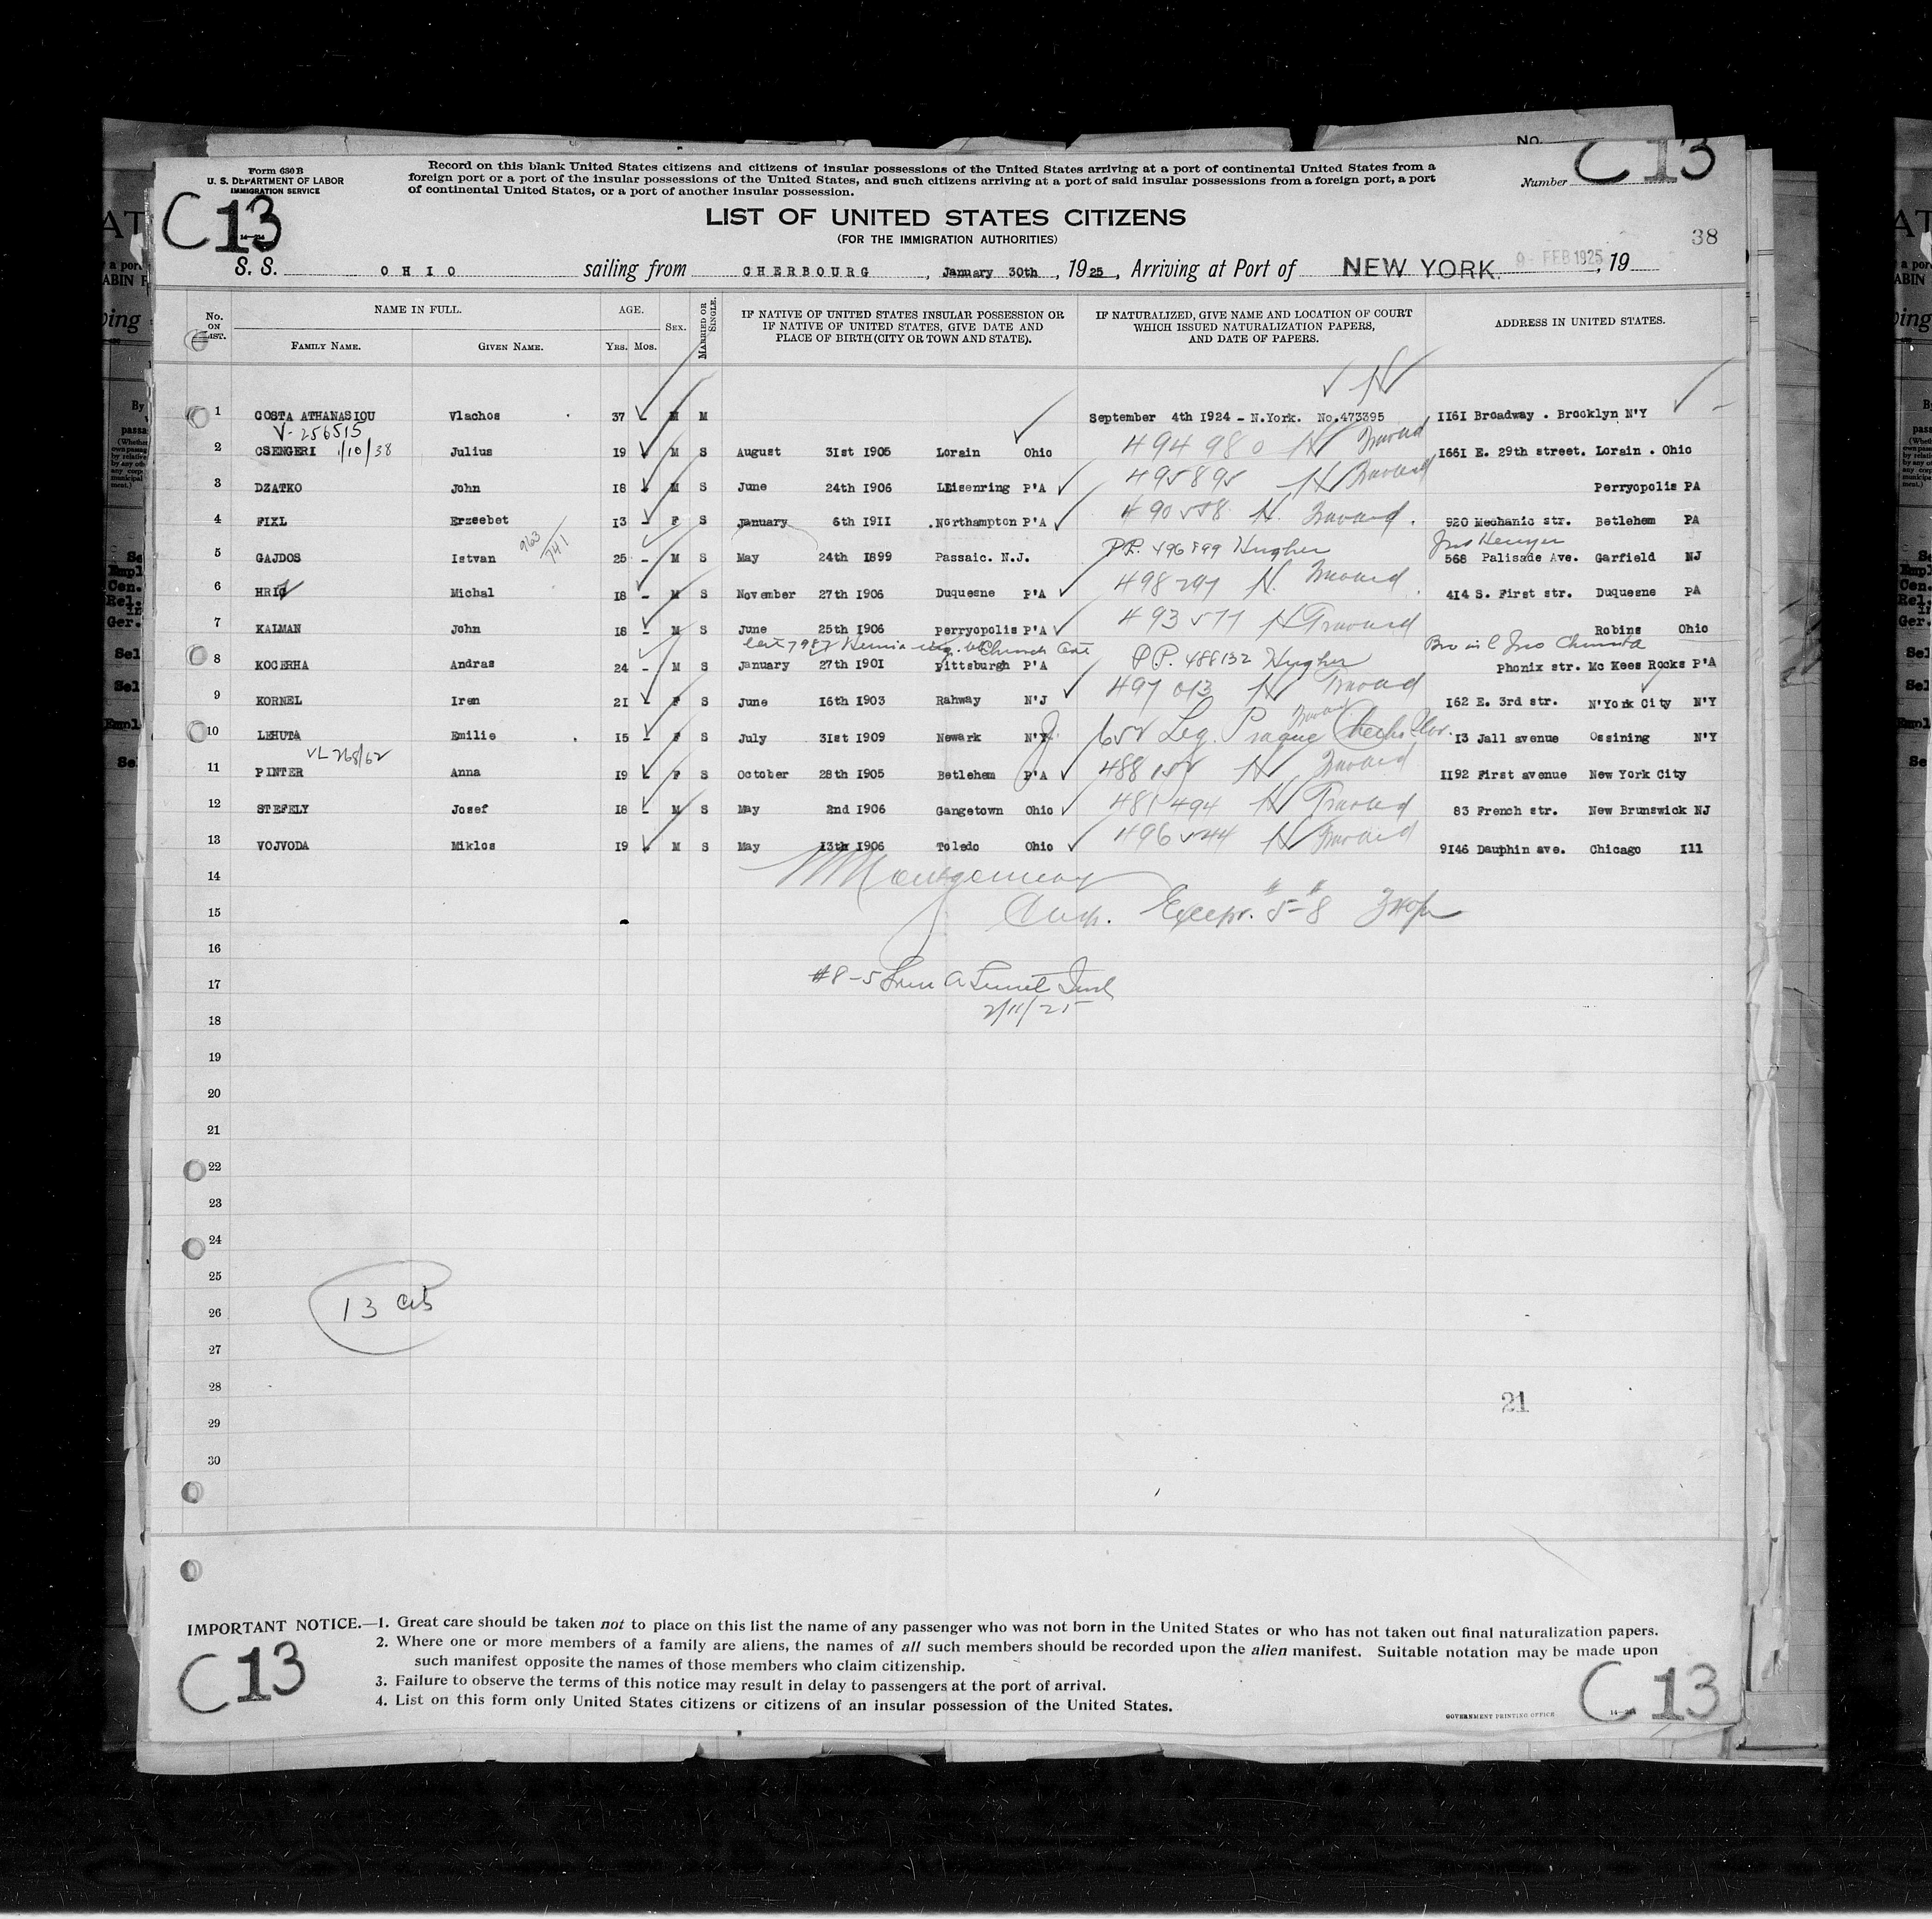 No.
Form 630 B
U. S. DEPARTMENT OF LABOR
IMMIGRATION SERVICE
Record on this blank United States citizens and citizens of insular possessions of the United States arriving at a port of continental United States from a
foreign port or a port of the insular possessions of the United States, and such citizens arriving at a port of said insular possessions from a foreign port, a port
of continental United States, or a port of another insular possession.
Number C 13
C 13
LIST OF UNITED STATES CITIZENS
(FOR THE IMMIGRATION AUTHORITIES)
38
S. S. OHIO sailing from CHERBOURG, January 30th, 1925, Arriving at Port of NEW YORK. 9 - FEB 1925, 19
No. ON LIST. NAME IN FULL. FAMILY NAME. GIVEN NAME. AGE. YRS. MOS. SEX. MARRIED OR SINGLE. IF NATIVE OF UNITED STATES INSULAR POSSESSION OR IF NATIVE OF UNITED STATES, GIVE DATE AND PLACE OF BIRTH (CITY OR TOWN AND STATE). IF NATURALIZED, GIVE NAME AND LOCATION OF COURT WHICH ISSUED NATURALIZATION PAPERS, AND DATE OF PAPERS. ADDRESS IN UNITED STATES.
1 COSTA ATHANASIOU Vlachos 37 - M M September 4th 1924 - N.York. No.473395 1161 Broadway . Brooklyn N'Y
V-256515
2 CSENGERI 1/10/38 Julius 19 M S August 31st 1905 Lorain Ohio 494980 1661 E. 29th street. Lorain . Ohio
3 DZATKO John 18 M S June 24th 1906 LEisenring P'A Perryopolis PA
4 FIXL Erzeebet 13 - F S January 6th 1911 .Northampton P'A 920 Mechanic str. Betlehem PA
963/741
5 GAJDOS Istvan 25 - M S May 24th 1899 Passaic. N.J. PP. 496899 Hughes 568 Palisade Ave. Garfield NJ
6 Michal 18 - M S November 27th 1906 Duquesne P'A 414 S. First str. Duquesne PA
7 KALMAN John 18 - M S June 25th 1906 Perryopolis P'A Robins Ohio
8 KOCERHA Andras 24 - M S January 27th 1901 Pittsburgh P'A P.P. 488132 Hughes Phonix str. Mc Kees Rocks P'A
9 KORNEL Iren 21 - F S June 16th 1903 Rahway N'J 497013 162 E. 3rd str. N'York City N'Y
10 LEHUTA Emilie 15 - F S July 31st 1909 Newark N'J. Leg. Prague 13 Jall avenue Ossining N'Y
VL 268/62
11 PINTER Anna 19 - F S October 28th 1905 Betlehem P'A 1192 First avenue New York City
12 STEFELY Josef 18 - M S May 2nd 1906 Gangetown Ohio 481494 83 French str. New Brunswick NJ
13 VOJVODA Miklos 19 M S May 13th 1906 Toledo Ohio 9146 Dauphin ave. Chicago Ill
14 Montgomery
15 #5-#8
16
17 #8-5
18 2/11/25
19
20
21
22
23
24
25
26 13 cits
27
28 21
29
30
IMPORTANT NOTICE.—1. Great care should be taken not to place on this list the name of any passenger who was not born in the United States or who has not taken out final naturalization papers.
2. Where one or more members of a family are aliens, the names of all such members should be recorded upon the alien manifest. Suitable notation may be made upon
such manifest opposite the names of those members who claim citizenship.
3. Failure to observe the terms of this notice may result in delay to passengers at the port of arrival.
4. List on this form only United States citizens or citizens of an insular possession of the United States.
C 13
GOVERNMENT PRINTING OFFICE
C 13